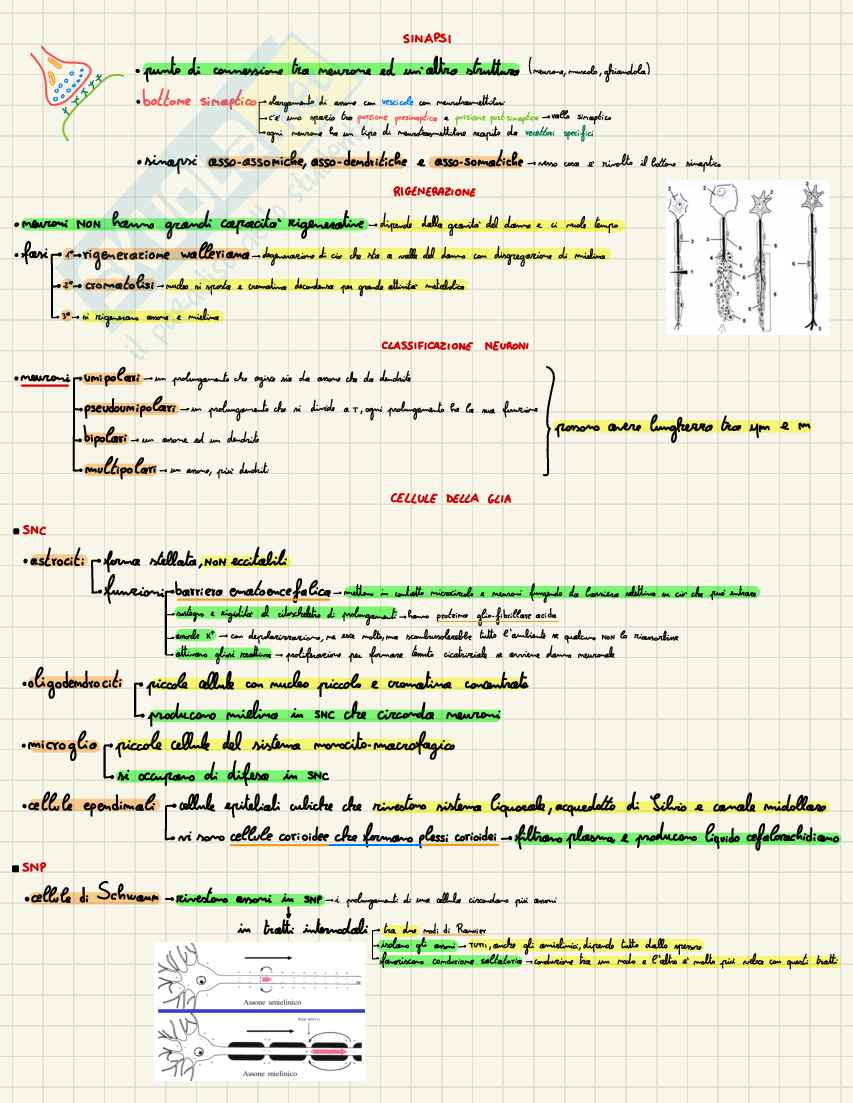 SINAPSI
• punto di connessione tra neurone ed un'altra struttura (neurone, muscolo, ghiandola)
• bottone sinaptico → slargamento di assone con vescicole con neurotrasmettitori
→ c'è uno spazio tra porzione presinaptica e porzione post-sinaptica → vallo sinaptico
→ ogni neurone ha un tipo di neurotrasmettitore recepito da recettori specifici
• sinapsi asso-assoniche, asso-dendritiche e asso-somatiche → verso cosa è rivolto il bottone sinaptico
RIGENERAZIONE
• neuroni NON hanno grandi capacità rigenerative → dipende dalla gravità del danno e ci vuole tempo
• fasi 1° → rigenerazione walleriana → degenerazione di ciò che sta a valle del danno con disgregazione di mielina
2° → cromatolisi → nucleo si sposta e cromatina decondensa per grande attività metabolica
3° → si rigenerano assone e mielina
CLASSIFICAZIONE NEURONI
• neuroni → unipolari → un prolungamento che agisce sia da assone che da dendrite
→ pseudounipolari → un prolungamento che si divide a T, ogni prolungamento ha la sua funzione
→ bipolari → un assone ed un dendrite
→ multipolari → un assone, più dendriti
possono avere lunghezza tra μm e m
CELLULE DELLA GLIA
■ SNC
• astrociti → forma stellata, NON eccitabili
→ funzioni → barriera ematoencefalica → mettono in contatto microcircolo e neuroni fungendo da barriera selettiva in ciò che può entrare
→ sostegno e rigidità al citoscheletro di prolungamenti → hanno proteina glio-fibrillare acida
→ assorbe K⁺ → con depolarizzazione, ne esce molto, ma scombussolerebbe tutto l'ambiente se qualcuno NON lo riassorbisse
→ attivano gliosi reattiva → proliferazione per formare tessuto cicatriziale se avviene danno neuronale
• oligodendrociti → piccole cellule con nucleo piccolo e cromatina concentrata
→ producono mielina in SNC che circonda neuroni
• microglia → piccole cellule del sistema monocito-macrofagico
→ si occupano di difesa in SNC
• cellule ependimali → cellule epiteliali cubiche che rivestono sistema liquorale, acquedotto di Silvio e canale midollare
→ vi sono cellule corioidee che formano plessi corioidei → filtrano plasma e producono liquido cefalorachidiano
■ SNP
• cellule di Schwann → rivestono assoni in SNP → i prolungamenti di una cellula circondano più assoni
in tratti internodali → tra due nodi di Ranvier
→ isolano gli assoni → TUTTI, anche gli amielinici, dipende tutto dallo spessore
→ favoriscono conduzione saltatoria → conduzione tra un nodo e l'altro è molto più veloce con questi tratti
Assone amielinico
Assone mielinico